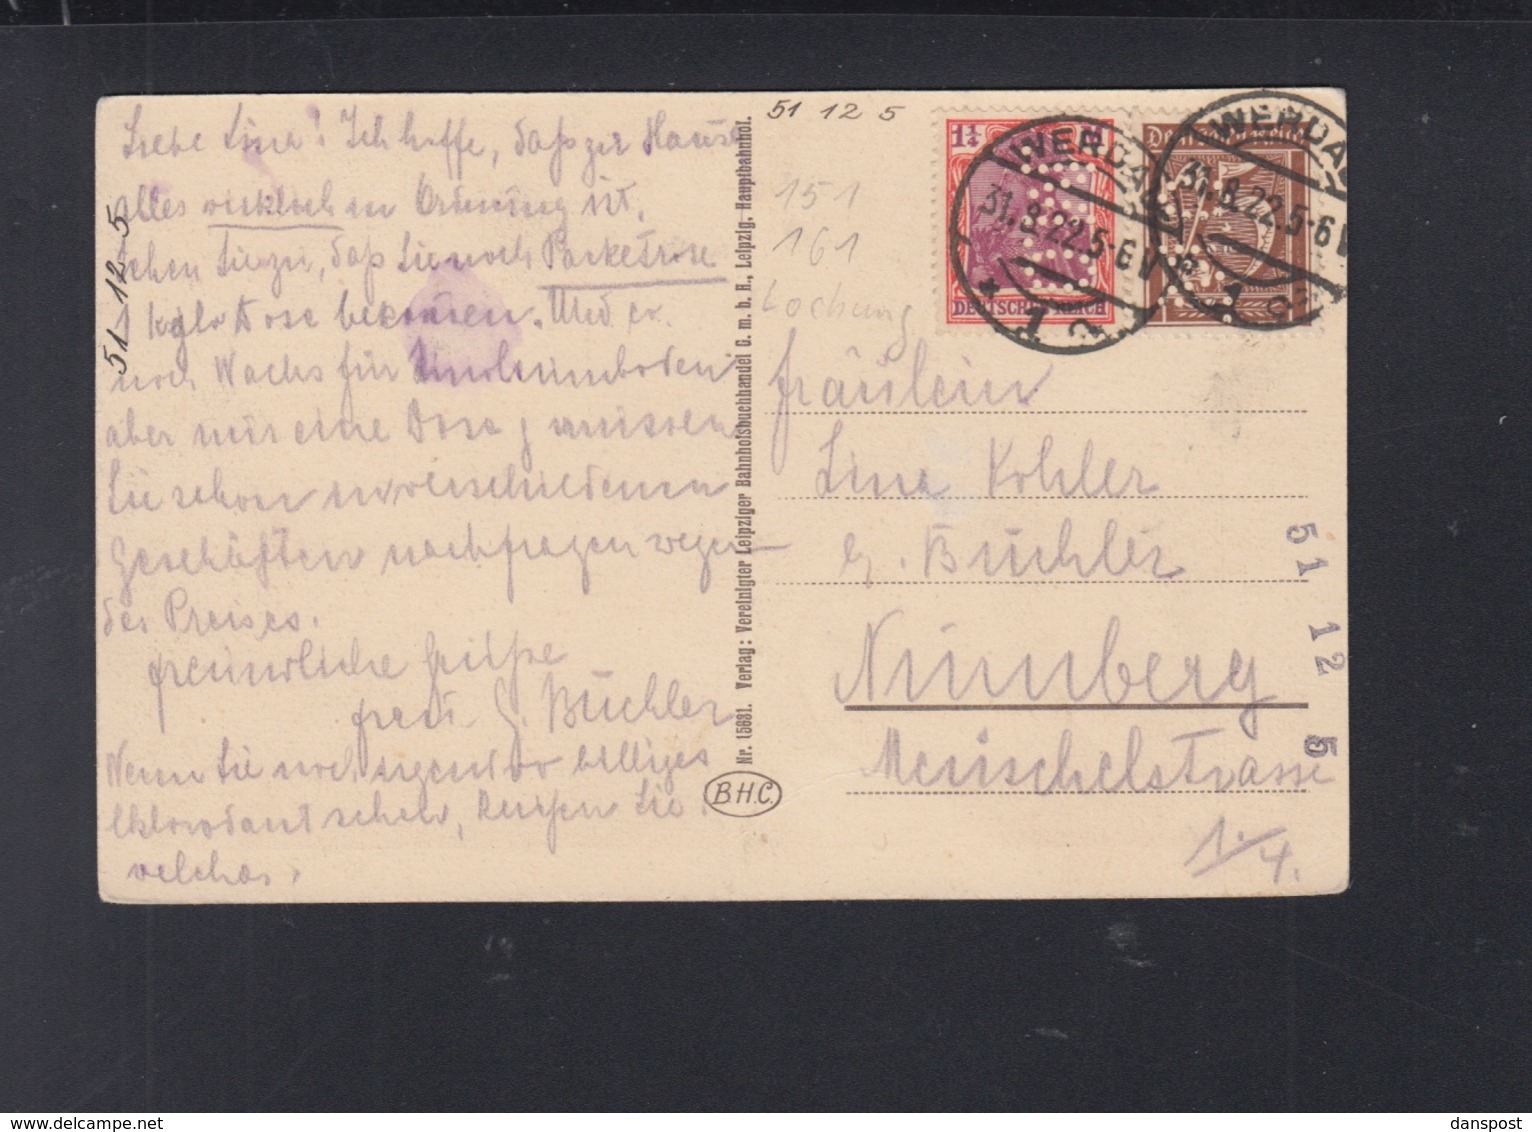 Liebe Line! Ich hoffe, dass zu Hause
alles wirklich in Ordnung ist.
sehen Sie zu, dass Sie noch Parketrose
1 kglo Dose bekommen. Und ev.
noch Wachs für Linoleumboden
aber nur eine Dose, müssen
Sie schon in verschiedenen
Geschäften nachfragen wegen
des Preises.
freundliche Grüsse
G. Büchler
Wenn Sie noch irgendwo billiges
sehen, kaufen Sie
welches.
51 12 5
51 12 5
Nr. 15631. Verlag: Vereinigter Leipziger Bahnhofsbuchhandel G. m. b. H., Leipzig, Hauptbahnhof.
B.H.C.
151
161
Lochung
1¼
DEUTSCHES REICH
Deutsches Reich
WERDAU
31.8.22.5-6V
1a
WERDAU
31.8.22.5-6V
Fräulein
Line Kohler
b. Büchler
Nürnberg
Meuschelstrasse
1./4.
51 12 5
danspost